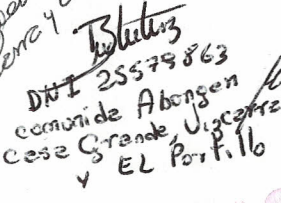 DNI 25579863
comunide Aborgen
Casa Grande, Vizcarra
y EL Portillo